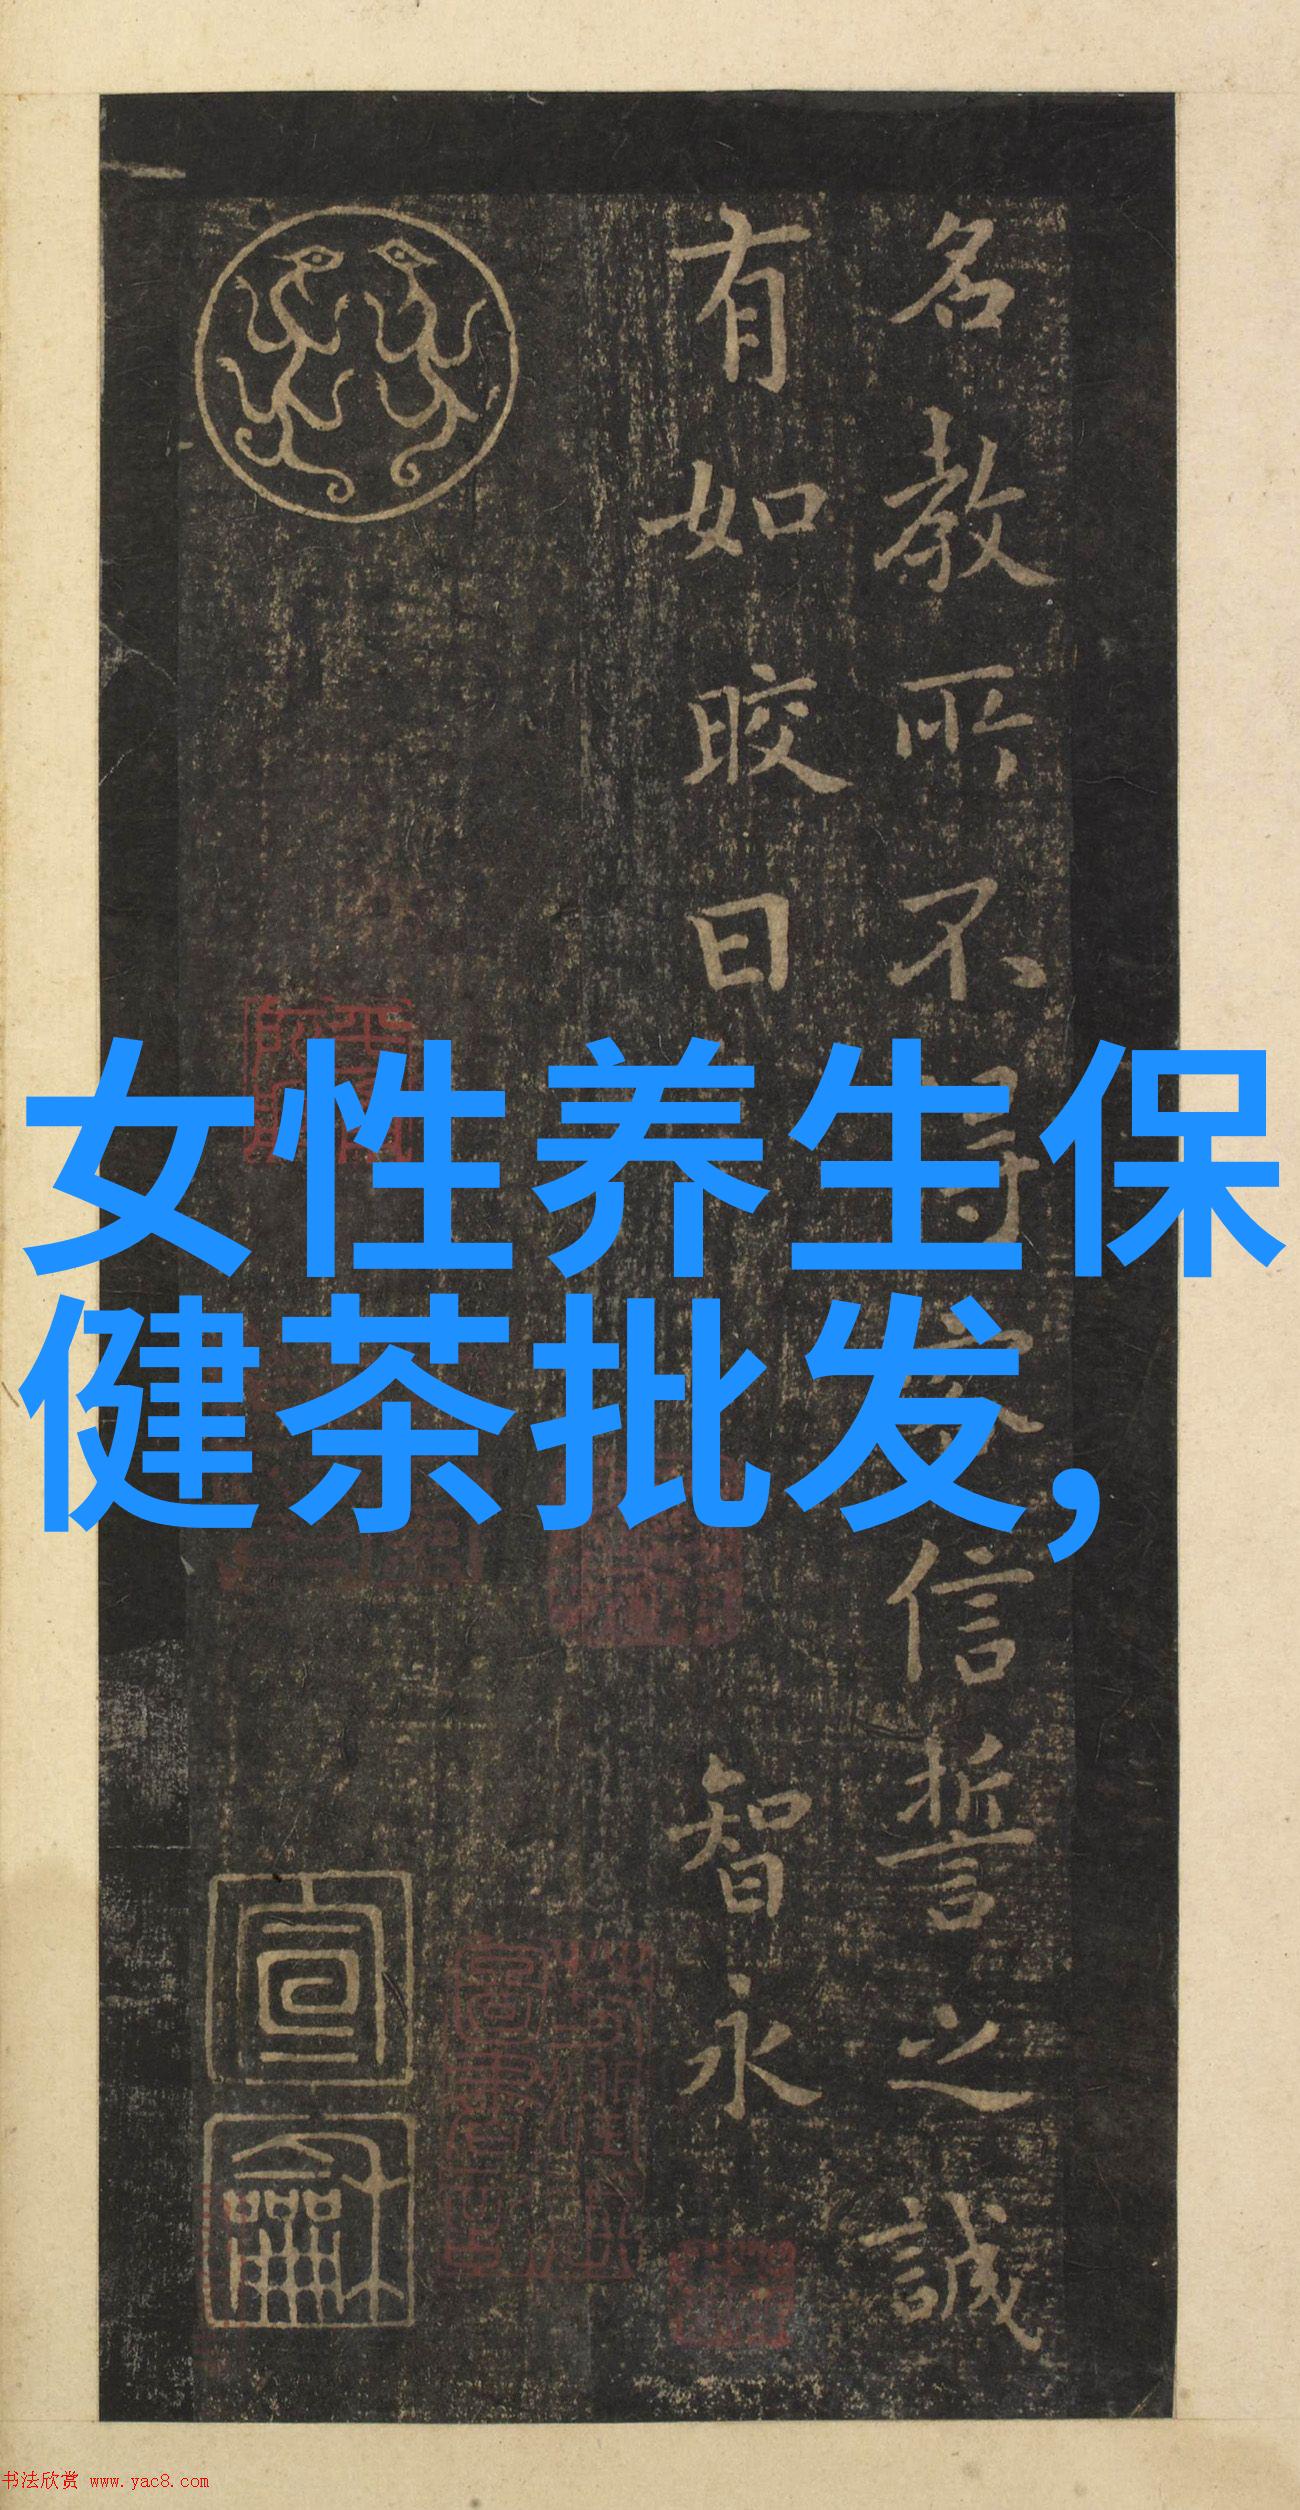 名教所不信誓之誠
有如晈日 智永
宣
龢
女性养生保
健茶批发,
书法欣赏 www.yac8.com